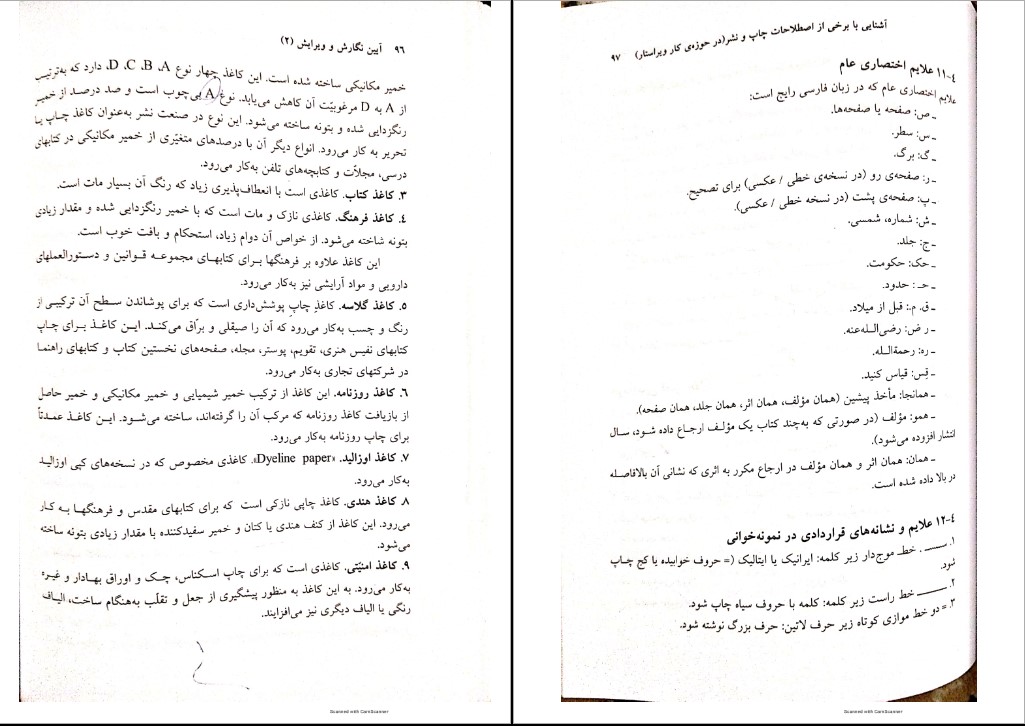 ۹۶ آیین نگارش و ویرایش (۲)
خمیر مکانیکی ساخته شده است. این کاغذ چهار نوع D ،C ،B ،A، دارد که به‌ترتیب
از A به D مرغوبیّت آن کاهش می‌یابد. نوع A بی‌چوب است و صد درصد از خمیر
رنگزدایی شده و بتونه ساخته می‌شود. این نوع در صنعت نشر به‌عنوان کاغذ چاپ یا
تحریر به کار می‌رود. انواع دیگر آن با درصدهای متغیّری از خمیر مکانیکی در کتابهای
درسی، مجلاّت و کتابچه‌های تلفن به‌کار می‌رود.
۳. کاغذ کتاب. کاغذی است با انعطاف‌پذیری زیاد که رنگ آن بسیار مات است.
۴. کاغذ فرهنگ. کاغذی نازک و مات است که با خمیر رنگزدایی شده و مقدار زیادی
بتونه شاخته می‌شود. از خواص آن دوام زیاد، استحکام و بافت خوب است.
این کاغذ علاوه بر فرهنگها برای کتابهای مجموعه قوانین و دستورالعملهای
دارویی و مواد آرایشی نیز به‌کار می‌رود.
۵. کاغذ گلاسه. کاغذِ چاپِ پوشش‌داری است که برای پوشاندن سطح آن ترکیبی از
رنگ و چسب به‌کار می‌رود که آن را صیقلی و برّاق می‌کند. این کاغذ برای چاپ
کتابهای نفیس هنری، تقویم، پوستر، مجله، صفحه‌های نخستین کتاب و کتابهای راهنما
در شرکتهای تجاری به‌کار می‌رود.
۶. کاغذ روزنامه. این کاغذ از ترکیب خمیر شیمیایی و خمیر مکانیکی و خمیر حاصل
از بازیافت کاغذ روزنامه که مرکب آن را گرفته‌اند، ساخته می‌شود. این کاغذ عمدتاً
برای چاپ روزنامه به‌کار می‌رود.
۷. کاغذ اوزالید. «Dyeline paper». کاغذی مخصوص که در نسخه‌های کپی اوزالید
به‌کار می‌رود.
۸. کاغذ هندی. کاغذ چاپی نازکی است که برای کتابهای مقدس و فرهنگها به کار
می‌رود. این کاغذ از کنف هندی یا کتان و خمیر سفیدکننده با مقدار زیادی بتونه ساخته
می‌شود.
۹. کاغذ امنیّتی. کاغذی است که برای چاپ اسکناس، چک و اوراق بهادار و غیره
به‌کار می‌رود. به این کاغذ به منظور پیشگیری از جعل و تقلّب به‌هنگام ساخت، الیاف
رنگی یا الیاف دیگری نیز می‌افزایند.
Scanned with CamScanner
آشنایی با برخی از اصطلاحات چاپ و نشر(در حوزه‌ی کار ویراستار) ۹۷
۱۱-۴ علایم اختصاری عام
علایم اختصاری عام که در زبان فارسی رایج است:
ـ ص: صفحه یا صفحه‌ها.
ـ س: سطر.
ـ گ: برگ.
ـ ر: صفحه‌ی رو (در نسخه‌ی خطی / عکسی) برای تصحیح.
ـ پ: صفحه‌ی پشت (در نسخه خطی / عکسی).
ـ ش: شماره، شمسی.
ـ ج: جلد.
ـ حک: حکومت.
ـ حـ : حدود.
ـ ق. م.: قبل از میلاد.
ـ ر ض: رضی‌الـله‌عنه.
ـ ره: رحمةالـله.
ـ قِس: قیاس کنید.
ـ همانجا: مأخذ پیشین (همان مؤلف، همان اثر، همان جلد، همان صفحه).
ـ همو: مؤلف (در صورتی که به‌چند کتاب یک مؤلف ارجاع داده شود، سال
انتشار افزوده می‌شود).
ـ همان: همان اثر و همان مؤلف در ارجاع مکرر به اثری که نشانی آن بالافاصله
در بالا داده شده است.
۱۲-۴ علایم و نشانه‌های قراردادی در نمونه‌خوانی
۱. ــــــ . خطـ موج‌دار زیر کلمه: ایرانیک یا ایتالیک (= حروف خوابیده یا کج چاپ
شود.
۲. ــــــــ خط راست زیر کلمه: کلمه با حروف سیاه چاپ شود.
۳. = دو خط موازی کوتاه زیر حرف لاتین: حرف بزرگ نوشته شود.
Scanned with CamScanner